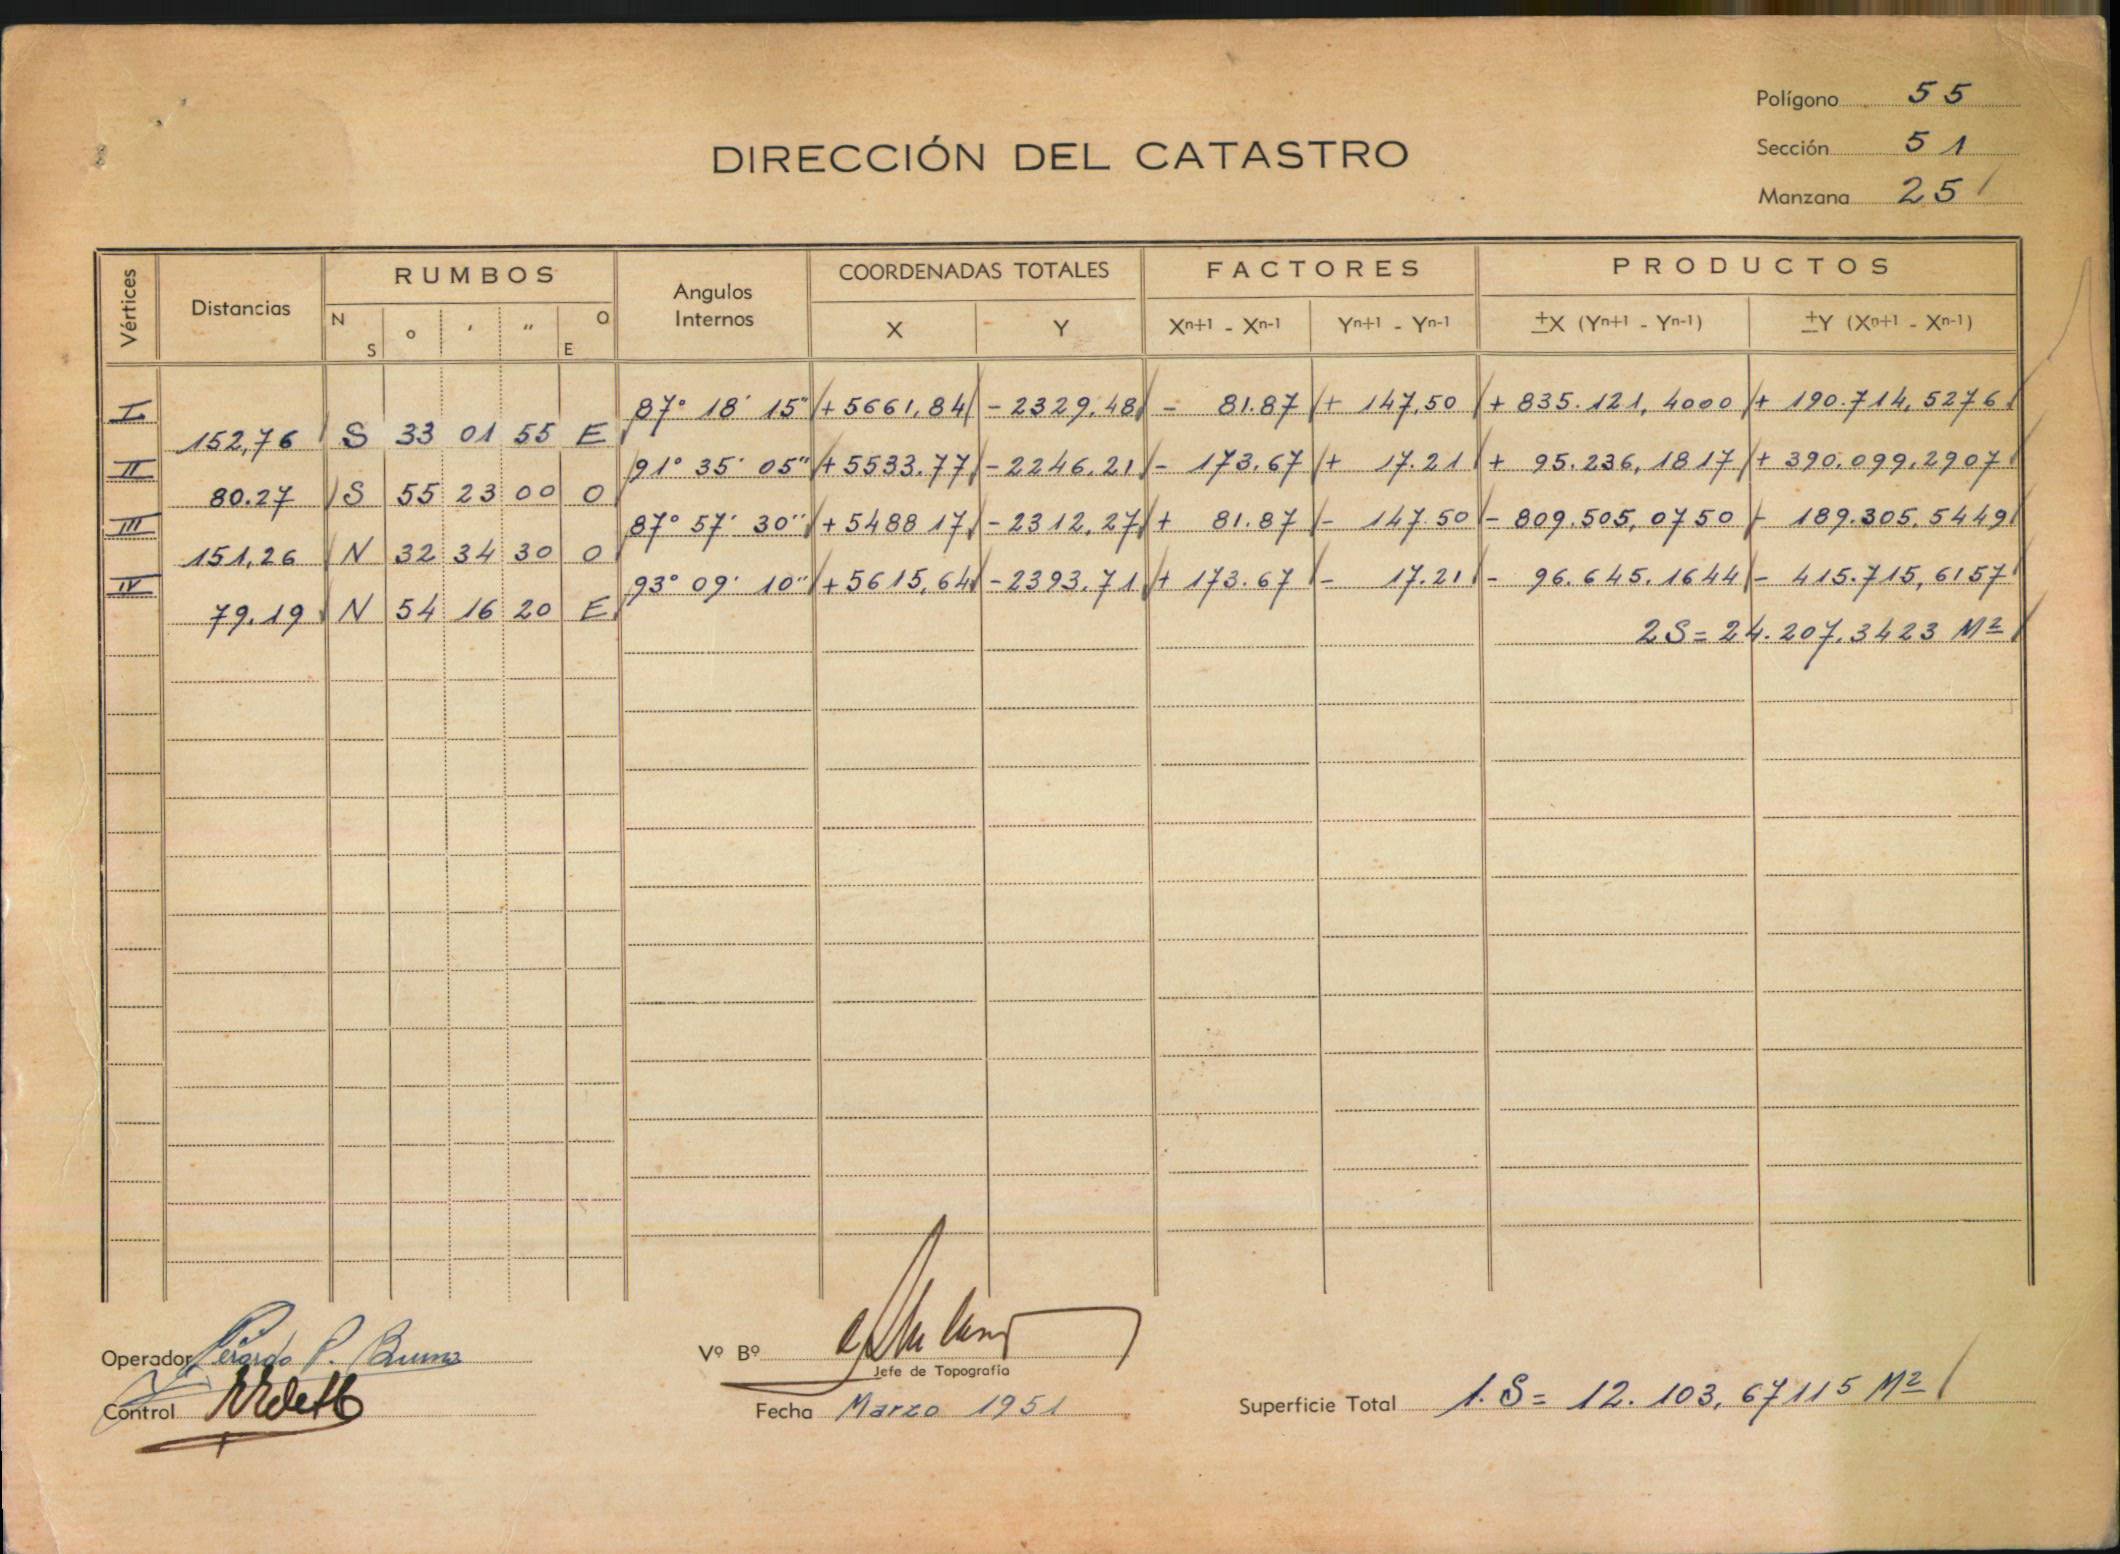 Polígono 55
Sección 51
DIRECCIÓN DEL CATASTRO
Manzana 25
Vértices Distancias RUMBOS Angulos Internos COORDENADAS TOTALES FACTORES PRODUCTOS
N S ° ′ ″ O E X Y Xn+1 - Xn-1 Yn+1 - Yn-1 ±X (Yn+1 - Yn-1) ±Y (Xn+1 - Xn-1)
I 87° 18' 15" +5661,84 -2329,48 - 81.87 + 147,50 + 835.121,4000 + 190.714,5276
152,76 S 33 01 55 E
II 91° 35' 05" +5533.77 -2246.21 - 173.67 + 17.21 + 95.236,1817 + 390.099.2907
80.27 S 55 23 00 O
III 87° 57' 30" +5488 17 -2312,27 + 81.87 - 147.50 - 809.505,0750 - 189.305,5449
151,26 N 32 34 30 O
IV 93° 09' 10" +5615,64 -2393.71 + 173.67 - 17.21 - 96.645.1644 - 415.715,6157
79.19 N 54 16 20 E
2S = 24.207.3423 M²
Operador P.
Vº Bº
Jefe de Topografía
Control
Fecha Marzo 1951
Superficie Total 1.S = 12.103,67115 M²